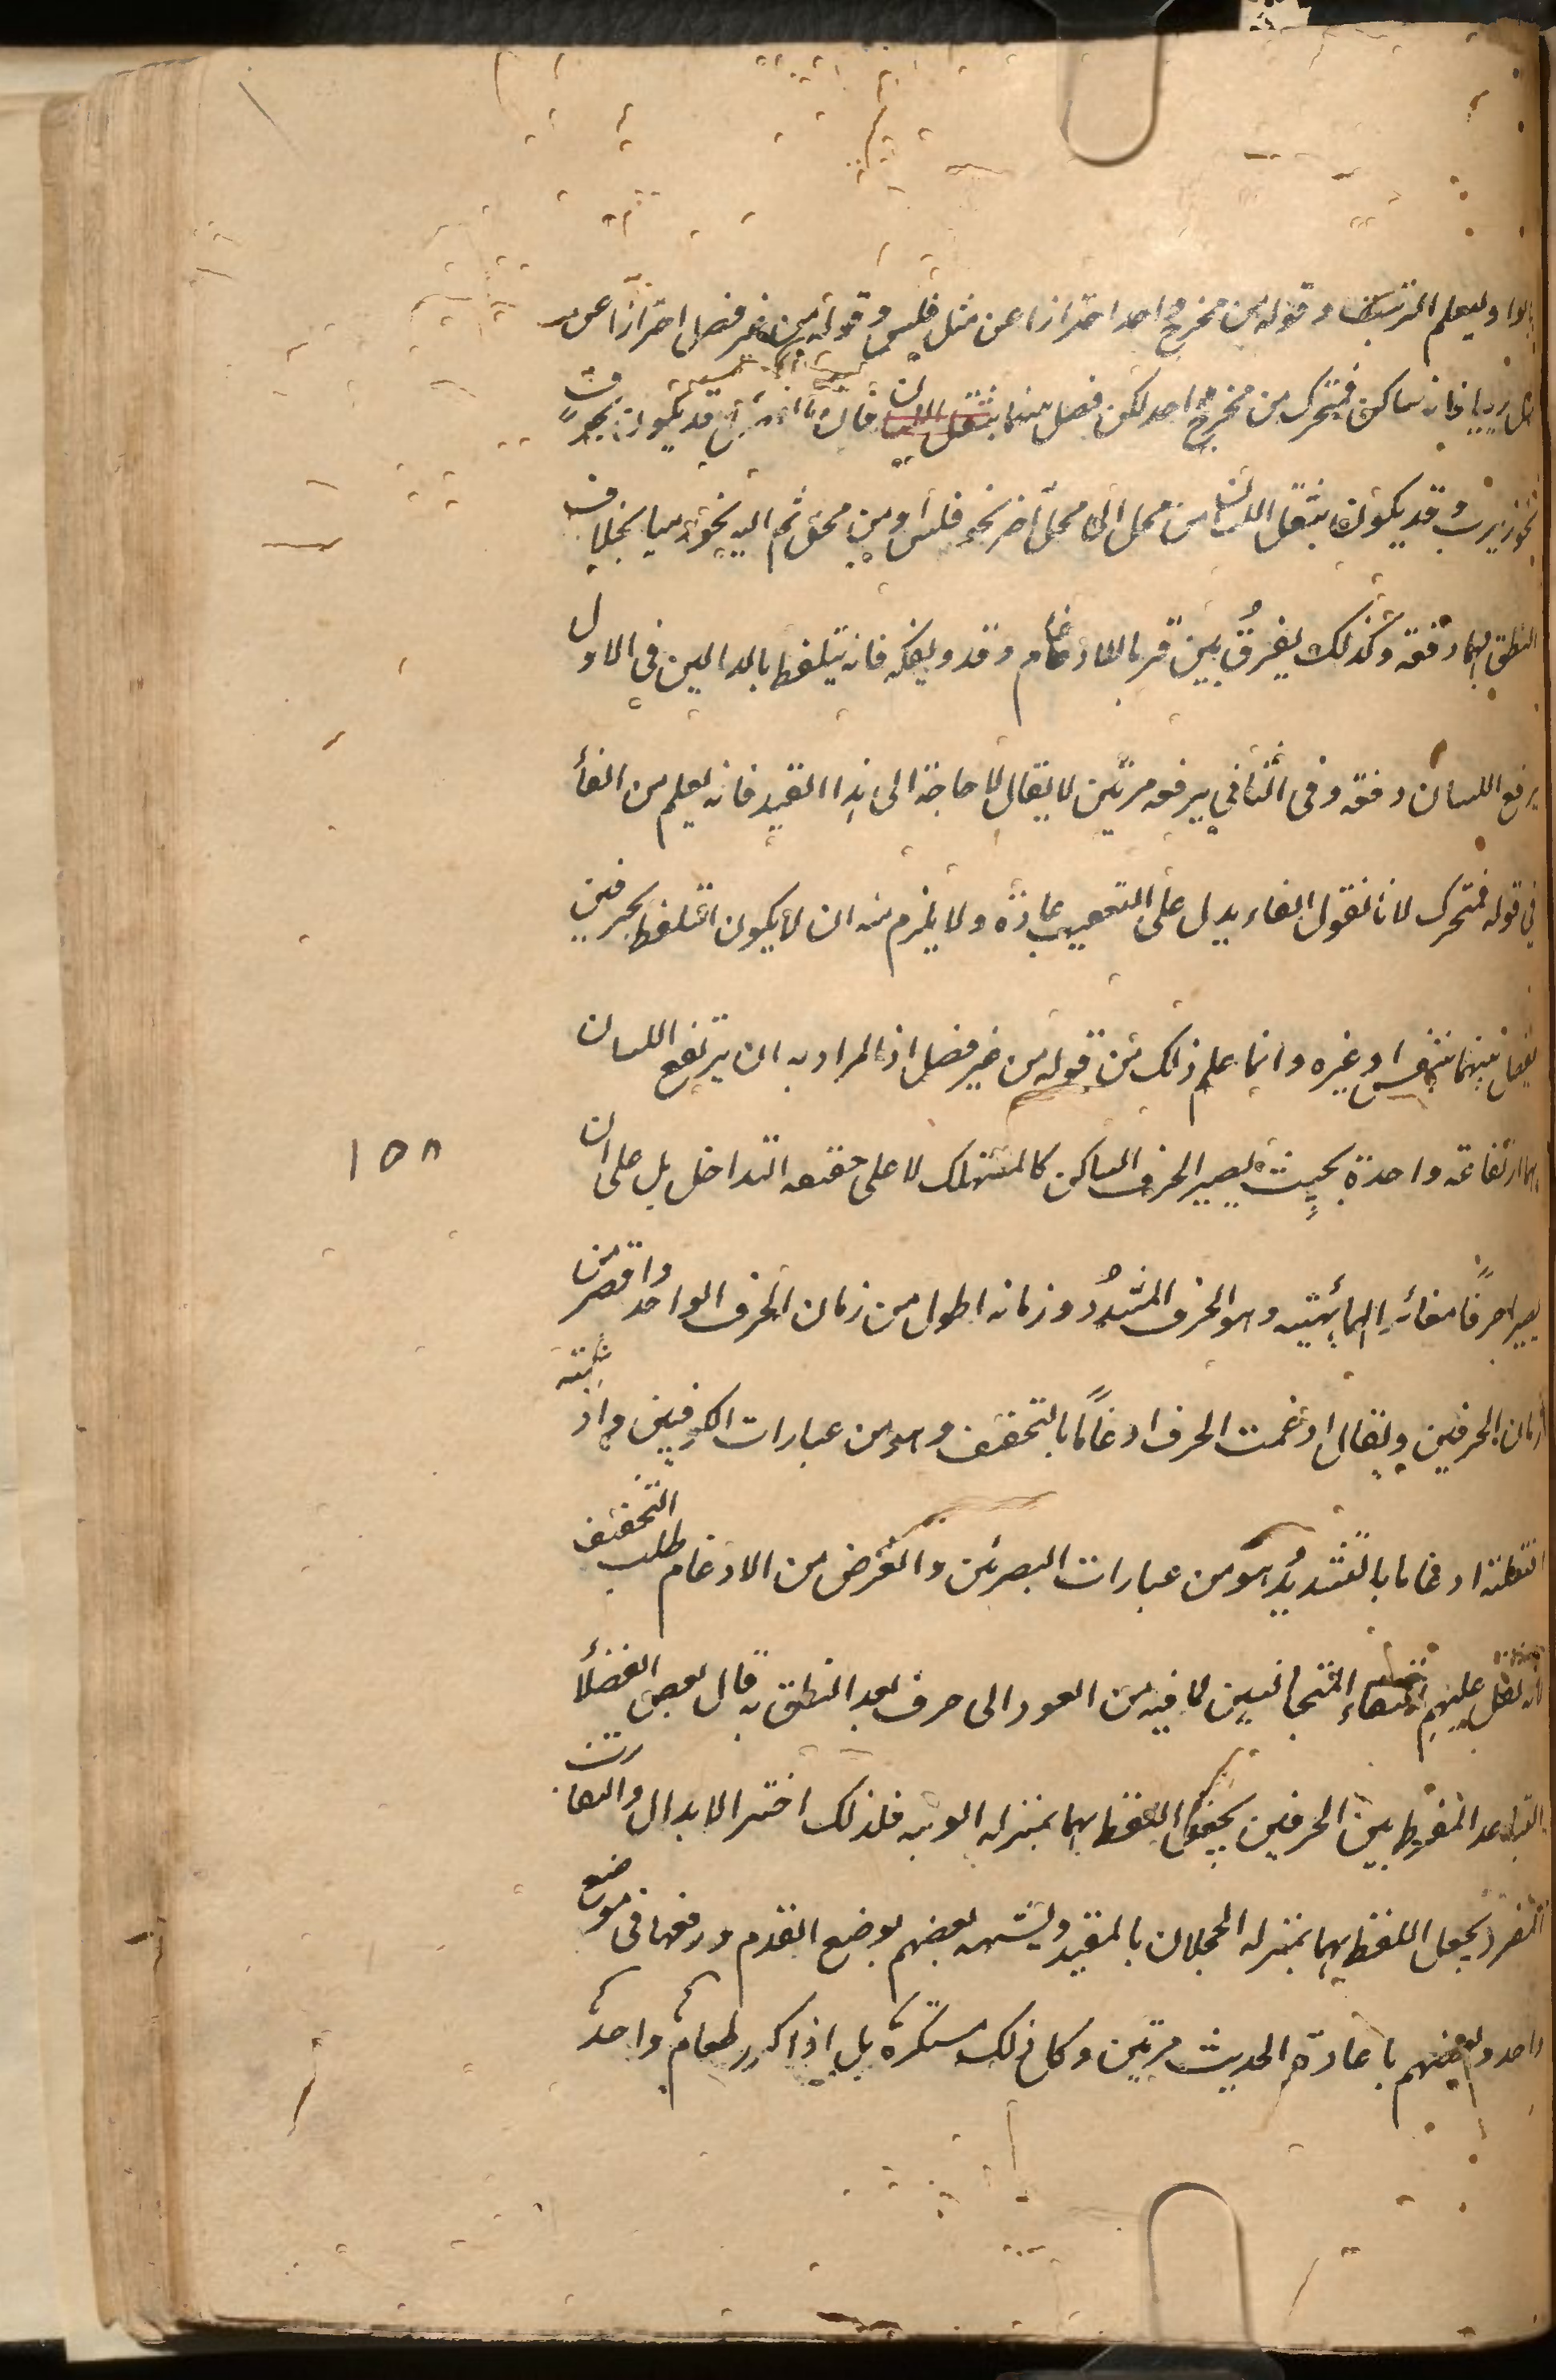 بالواو ليعلم الترتيب وقوله من مخرج واحد احترازا عن مثل فلس وقوله من غير فصل احترازا عن
مثل رييا فانه ساكن فمتحرك من مخرج واحد لكن فصل بينهما بنقل اللسان فان قد يكون بحرف
نحو زيرب وقد يكون بنقل اللسان من محل الى محل اخر نحو فلس او من محل ثم اليه نحو رييا بخلاف
النطق بهما دفعة وكذلك يفرق بين قر بالادغام وقدد بفكه فانه يتلفظ بالدالين في الاول
برفع اللسان دفعة وفى الثاني يرفعه مرتين لا يقال لا حاجة الى هذا القيد فانه يعلم من الفأ
في قوله فمتحرك لانا نقول الفاء يدل على التعقيب عادة ولا يلزم منه ان لا يكون التلفظ بحرفين
يفصل بينهما بنفس او غيره وانما علم ذلك من قوله من غير فصل اذ المراد به ان يرتفع اللسان
بهما ارتفاعة واحدة بحيث يصير الحرف الساكن كالمستهلك لا على حقيقه التداخل بل على ان
يصير احرفًا مغائر الهما بهيئه وهو الحرف المشدد وزمانه اطول من زمان الحرف الواحد واقصر من
زمان الحرفين ويقال ادغمت الحرف ادغامًا بالتخفيف وهو من عبارات الكوفيين واذ غمته
افتعلته ادغاما بالتشديد وهو من عبارات البصريين والغرض من الادغام طلب التخفيف
لانه ثقل عليهم التقاء المتجانسين لما فيه من العود الى حرف بعد النطق به قال بعض الفضلأ
التباعد المفرط بين الحرفين يجعل اللفظ بهما بمنزله الوثبه فلذلك اختير الابدال والتقارب
المفرد يجعل اللفظ بهما بمنزله الحجلان بالمقيد ويشبهه بعضهم بوضع القدم ورفعها فى موضع
واحد وبعضهم باعادة الحديث مرتين وكل ذلك مستكره بل اذا كرر طعام واحد
١٥٨